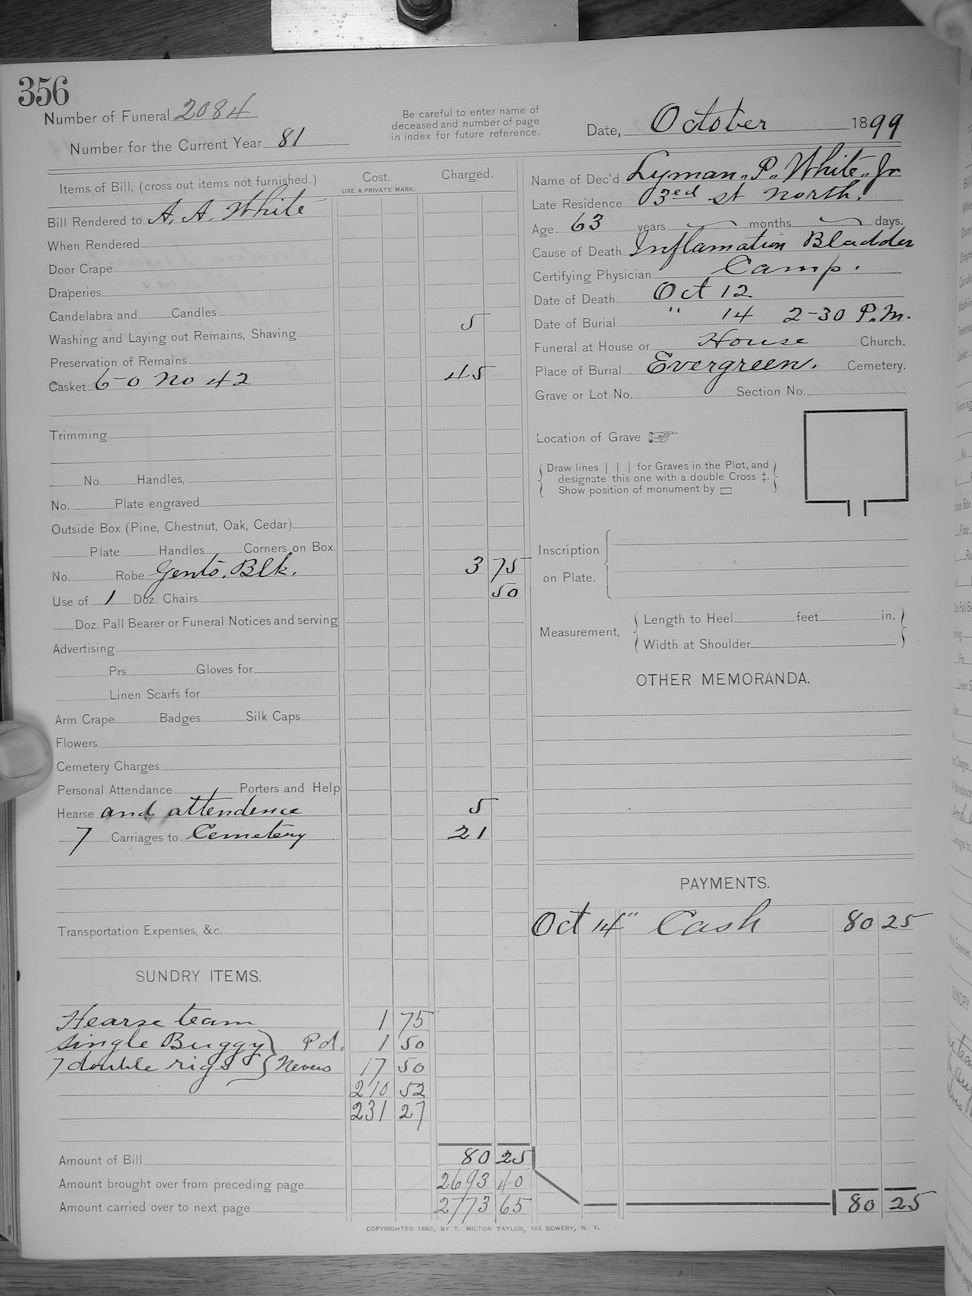 356
Number of Funeral 2084
Number for the Current Year 81
Be careful to enter name of
deceased and number of page
in index for future reference.
Date, October 1899
Items of Bill, (cross out items not furnished.)
Cost.
USE A PRIVATE MARK.
Charged.
Bill Rendered to A. A. White
When Rendered
Door Crape
Draperies
Candelabra and Candles
Washing and Laying out Remains, Shaving 5
Preservation of Remains
Casket 6-0 no 42 45
Trimming
No. Handles,
No. Plate engraved
Outside Box (Pine, Chestnut, Oak, Cedar)
Plate Handles Corners on Box.
No. Robe Gents. Blk. 3 75
Use of 1 Doz. Chairs 50
Doz. Pall Bearer or Funeral Notices and serving
Advertising
Prs. Gloves for
Linen Scarfs for
Arm Crape Badges Silk Caps
Flowers
Cemetery Charges
Personal Attendance Porters and Help
Hearse and attendence 5
7 Carriages to Cemetery 21
Transportation Expenses, &c.
SUNDRY ITEMS.
Hearse team 1 75
Single Buggy } Pd. 1 50
7 double rigs } Nevers 17 50
210 52
231 27
Amount of Bill 80 25
Amount brought over from preceding page 2693 40
Amount carried over to next page 2773 65
Name of Dec'd Lyman. P. White. Jr
Late Residence 3ed st north.
Age 63 years months days.
Cause of Death Inflamation Bladder
Certifying Physician Camp.
Date of Death Oct 12
Date of Burial " 14 2-30 P.M.
Funeral at House or House Church.
Place of Burial Evergreen. Cemetery.
Grave or Lot No. Section No.
Location of Grave
Draw lines | | | for Graves in the Plot, and
designate this one with a double Cross ‡.
Show position of monument by ▭
Inscription
on Plate.
Measurement, { Length to Heel feet in. }
Width at Shoulder
OTHER MEMORANDA.
PAYMENTS.
Oct 14" Cash 80 25
80 25
COPYRIGHTED 1890, BY T. MILTON TAYLOR, 163 BOWERY, N. Y.